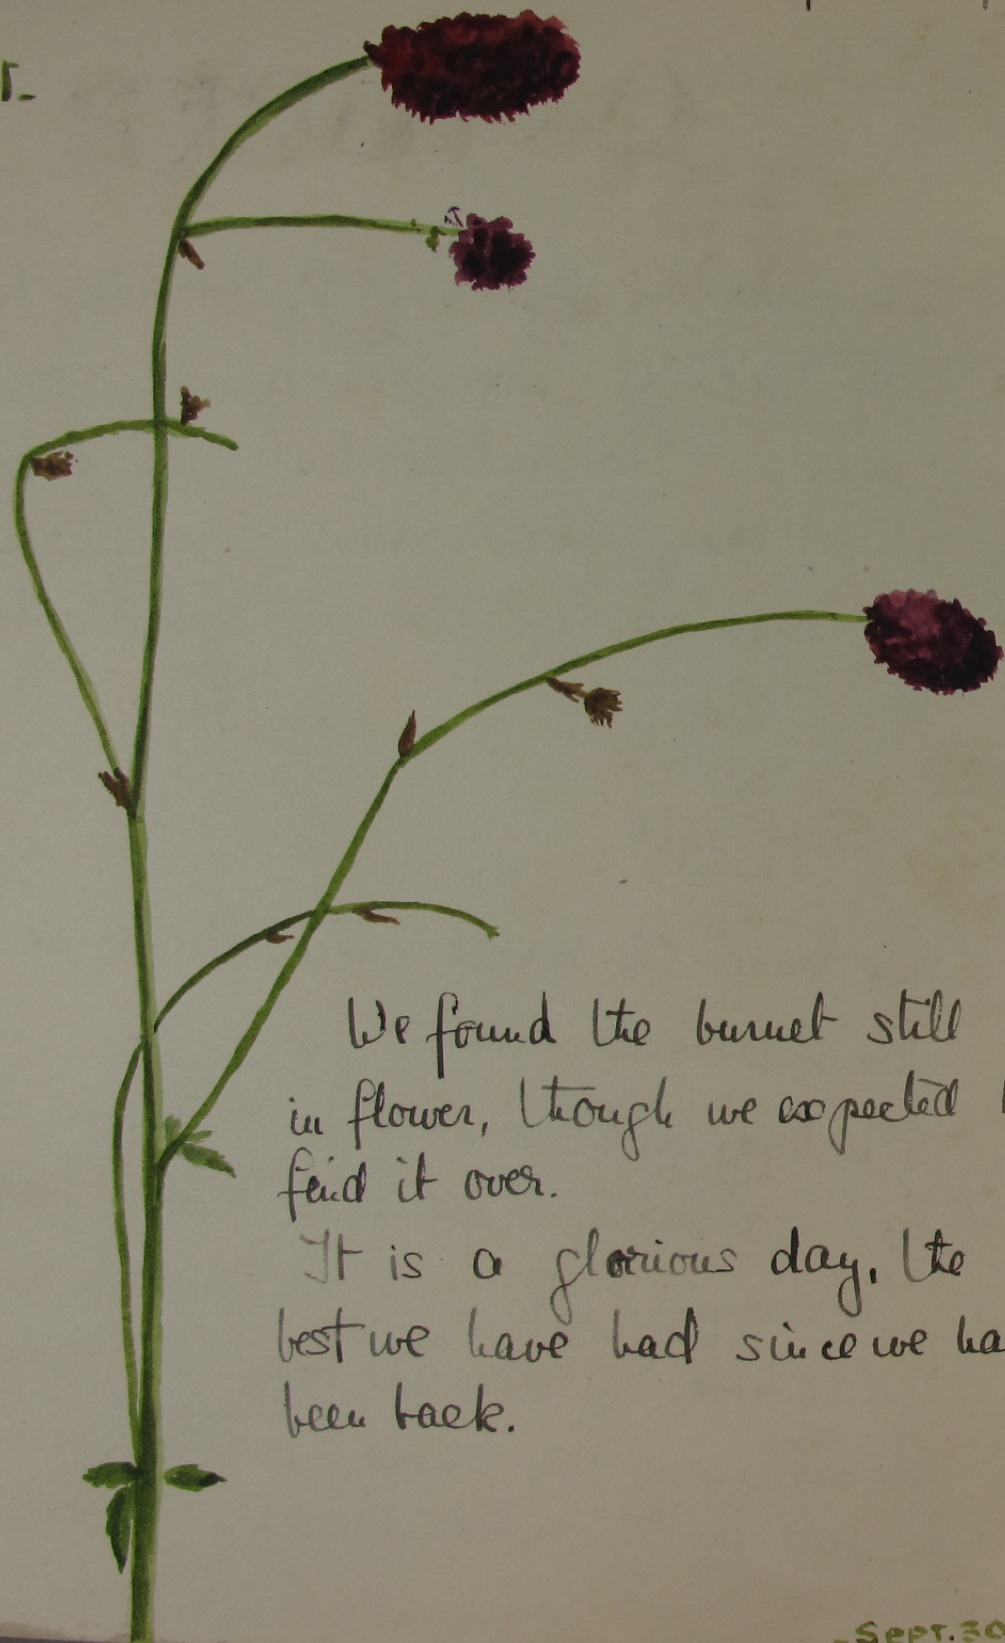 We found the burnet still
in flower, though we expected
find it over.
It is a glorious day, the
best we have had since we ha
been back.
Sept. 30